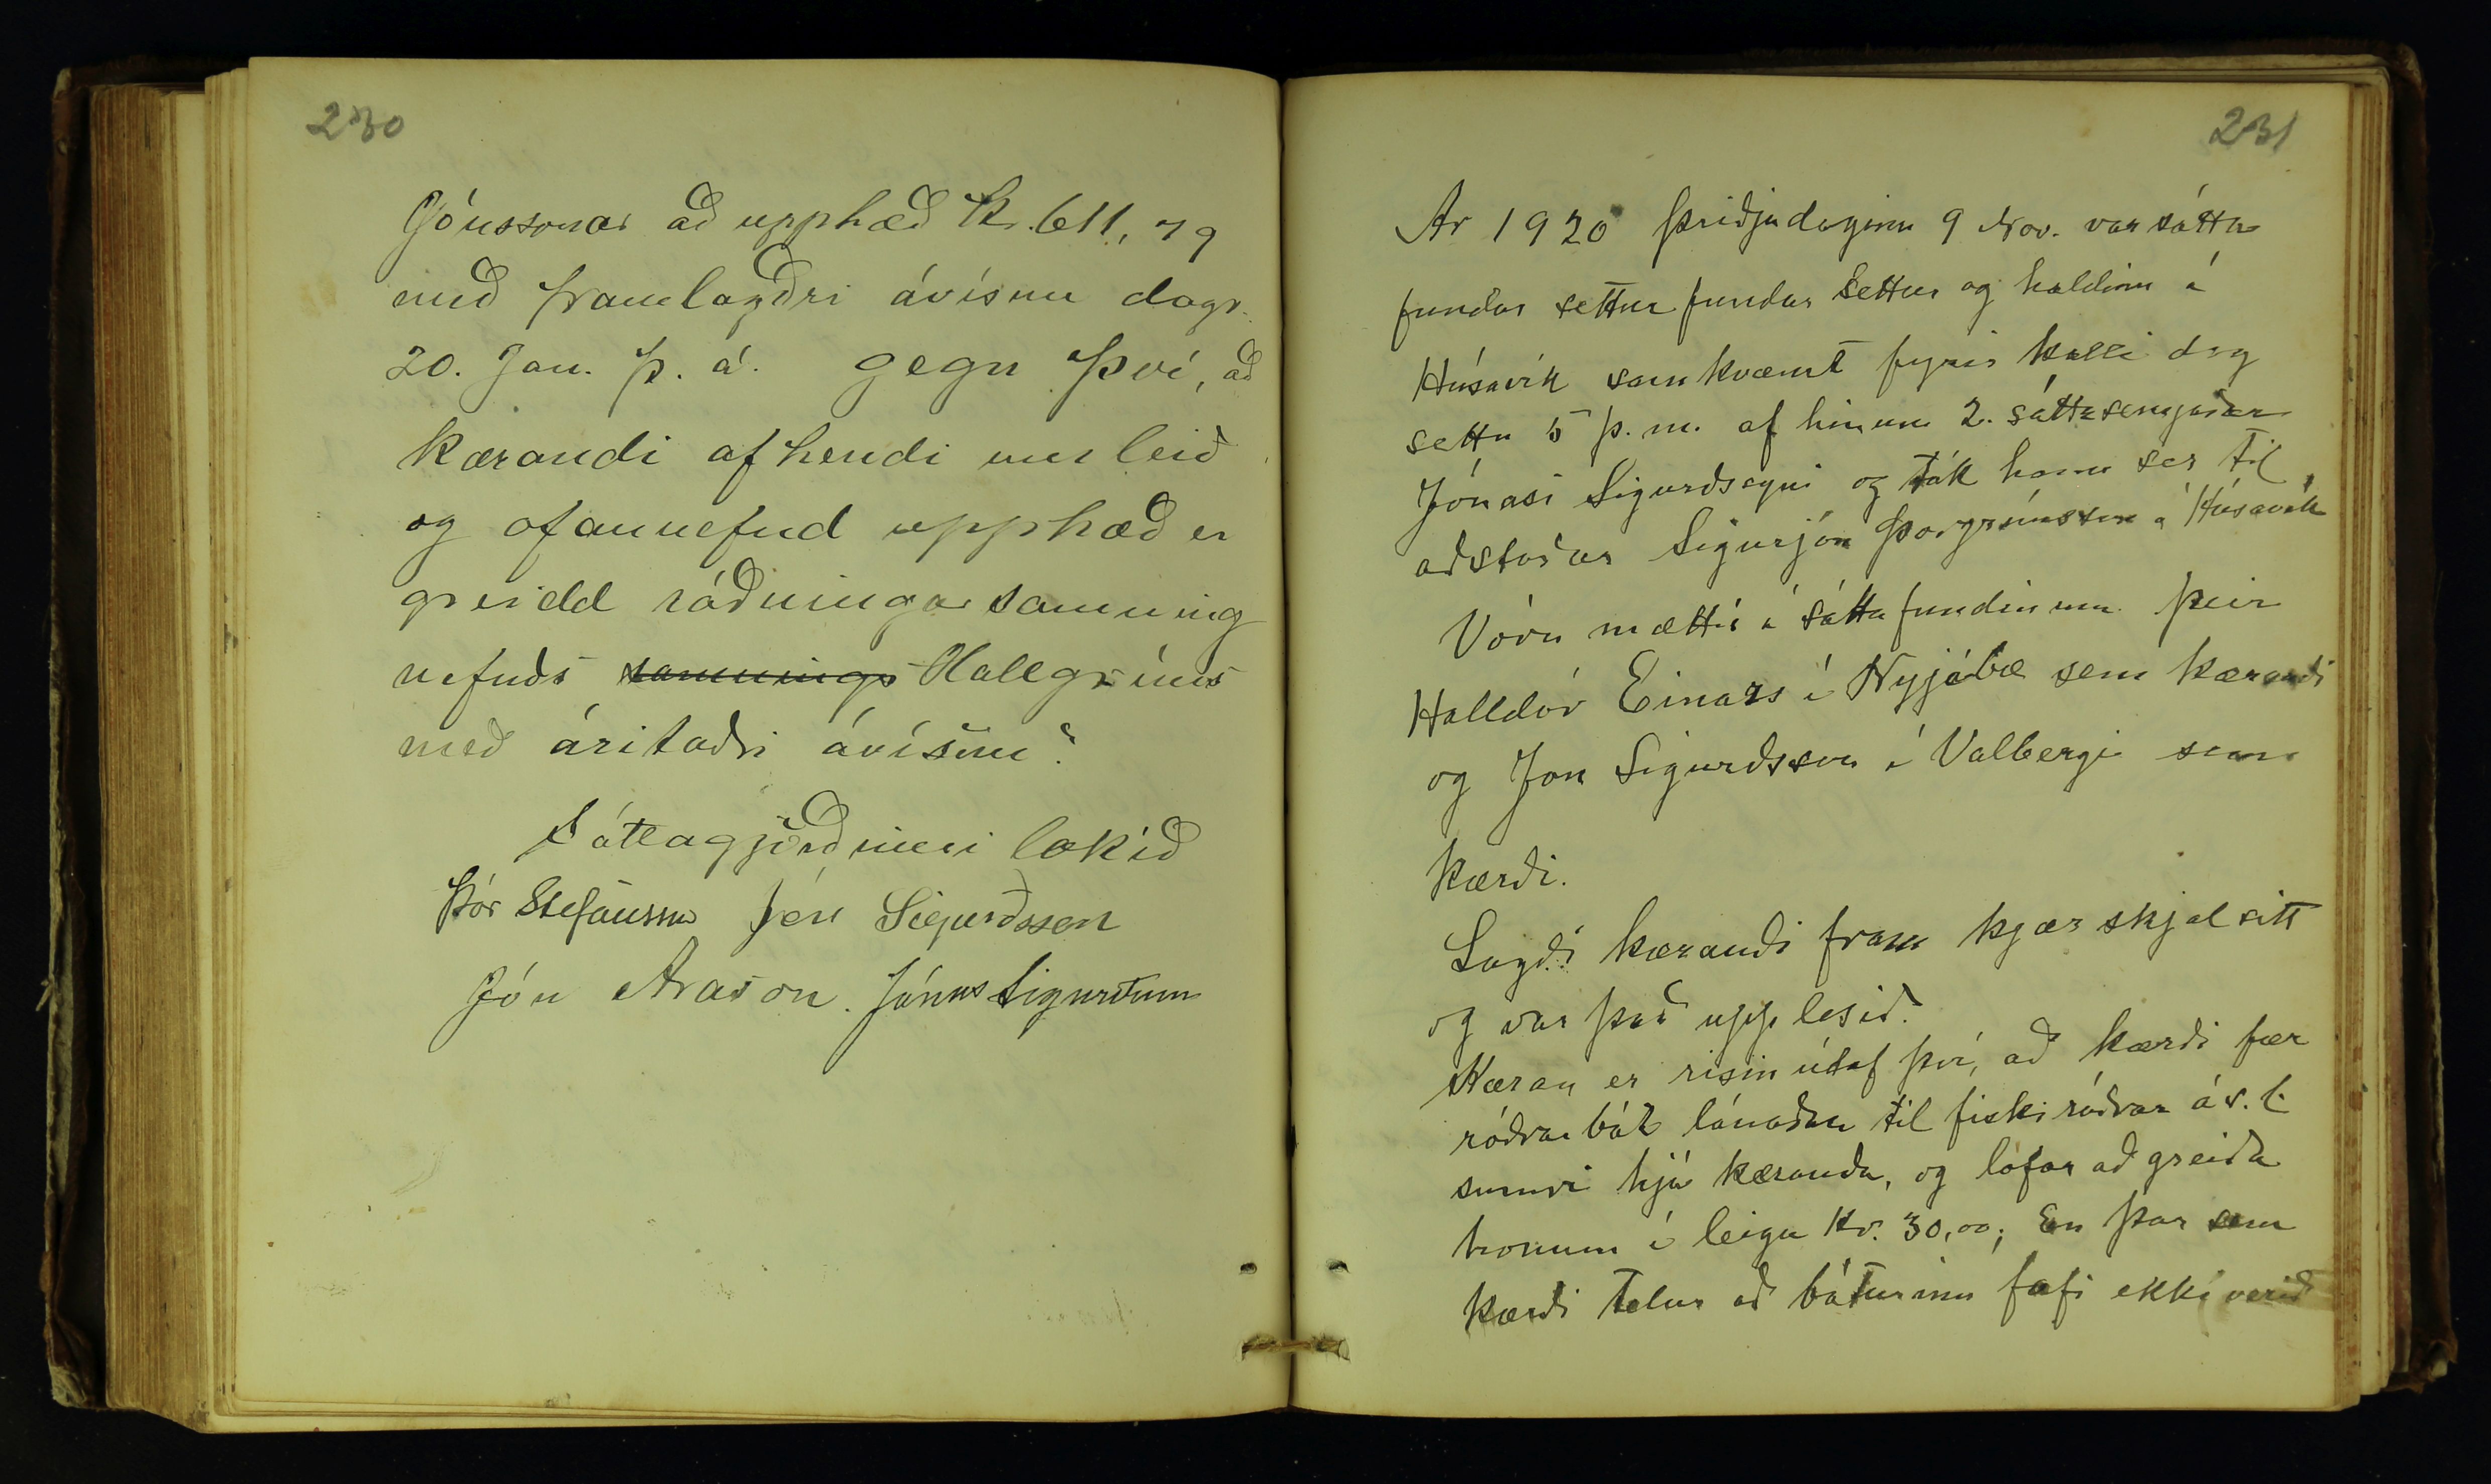 230
Jónssonar að upphæð Kr. 611,79
með framlagðri ávísun dags.
20. Jan. þ. á. gegn því, að
kærandi afhendi um leið
og ofannefnd upphæð er
greidd ráðningarsamning
nefnds samnings Hallgríms
með áritaðri ávísun"
Sáttagjörðinni lokið
Þór Stefánsson Jón Sigurðsson
Jón Arason. Jónas Sigurðsson
231
Ár 1920 þriðjudaginn 9 Nov. var sátta
fundur settur fundur settur og haldinn á
Húsavík samkvæmt fyrir kalli dag
settu 5 þ. m. af hinum 2. sáttasemjara
Jónasi Sigurðssyni og tók hann sér til
aðstoðar Sigurjón Þorgrímsson á Húsavík
Vóru mættir á sáttafundinum þeir
Halldór Einars í Nyjábæ sem kærandi
og Jón Sigurðsson á Valbergi sem
kærði.
Lagði kærandi fram kjær skjal sitt
og var það upp lesið.
Kæran er risin útaf því, að kærði fær
róðrar bát lánaðan til fiski róðrar á s. l.
sumri hjá kæranda, og lofar að greiða
honum í leigu Kr. 30,00; En þar sem
kærði telur að báturinn fafi ekki verið